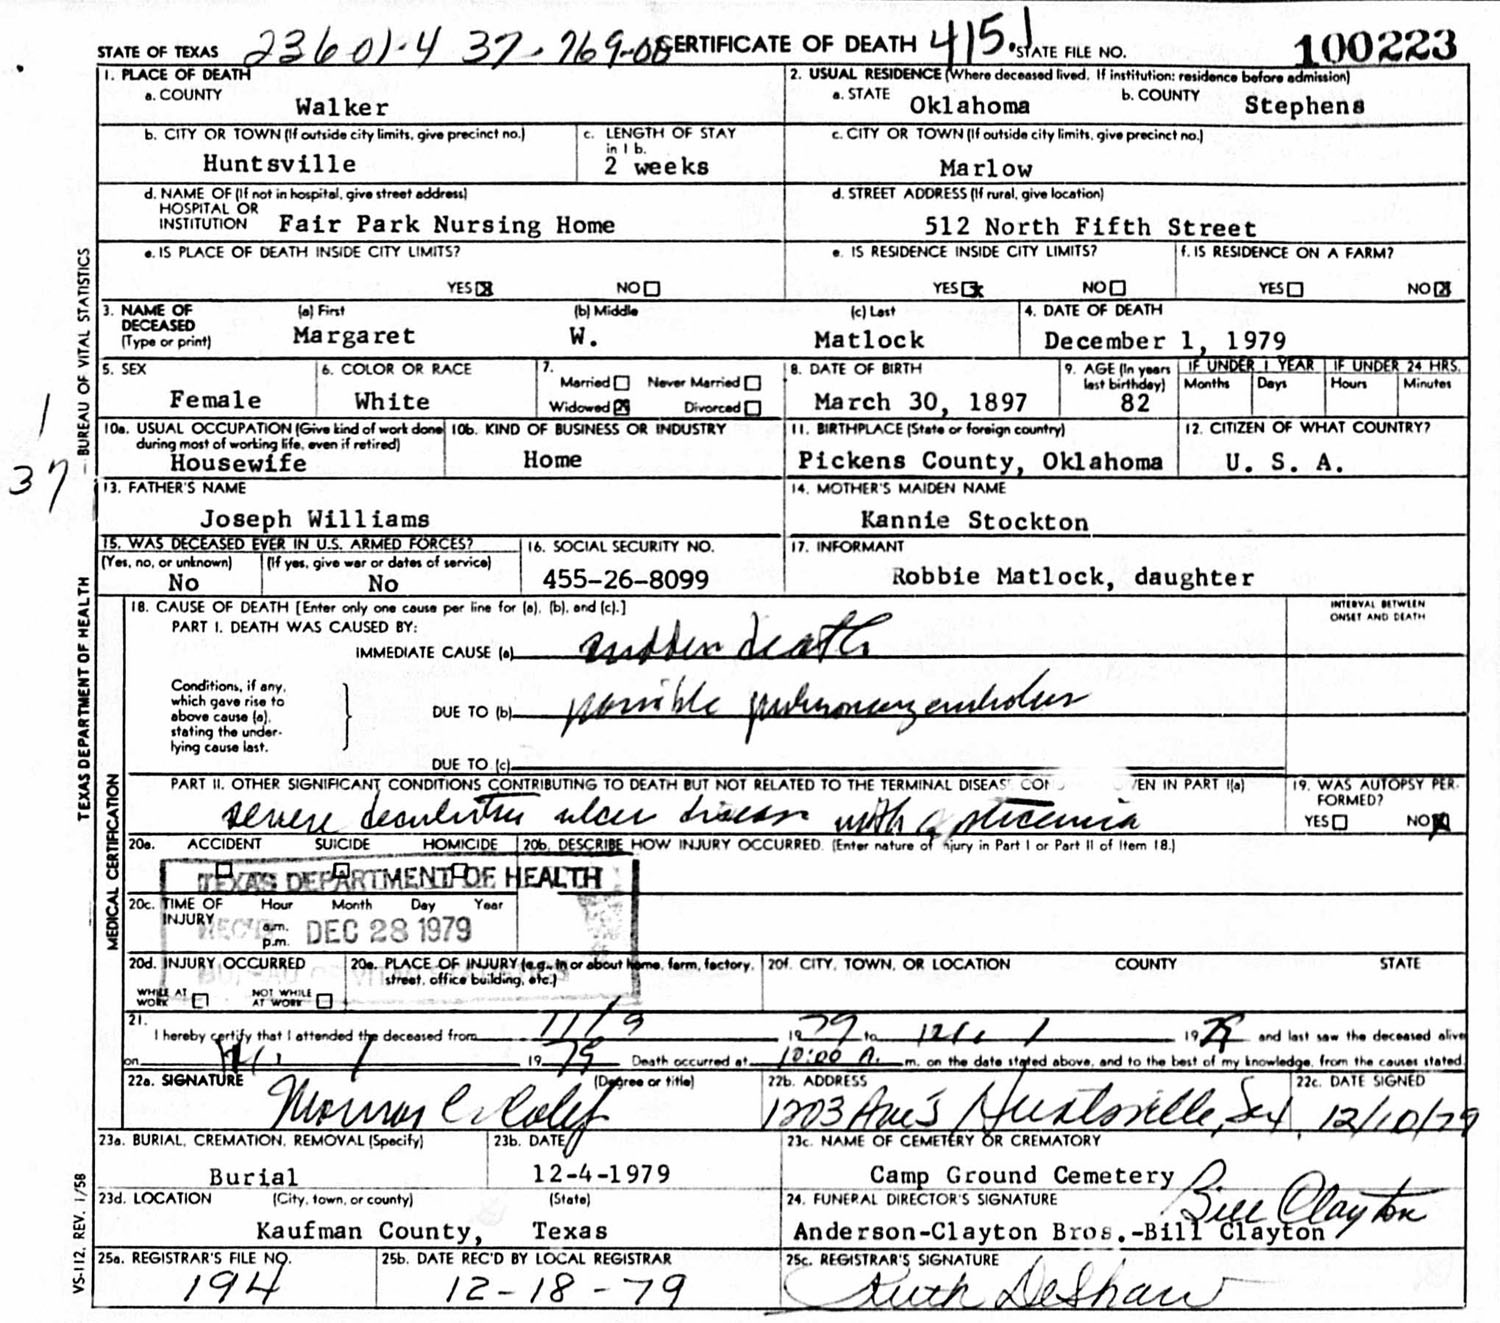 STATE OF TEXAS 23601-4 37-769-00 CERTIFICATE OF DEATH 415.1 STATE FILE NO. 100223
1. PLACE OF DEATH
a. COUNTY Walker
2. USUAL RESIDENCE (Where deceased lived. If institution: residence before admission)
a. STATE Oklahoma b. COUNTY Stephens
b. CITY OR TOWN (If outside city limits, give precinct no.) Huntsville
c. LENGTH OF STAY in 1 b. 2 weeks
c. CITY OR TOWN (If outside city limits, give precinct no.) Marlow
d. NAME OF (If not in hospital, give street address) HOSPITAL OR INSTITUTION Fair Park Nursing Home
d. STREET ADDRESS (If rural, give location) 512 North Fifth Street
e. IS PLACE OF DEATH INSIDE CITY LIMITS? YES NO
e. IS RESIDENCE INSIDE CITY LIMITS? YES NO
f. IS RESIDENCE ON A FARM? YES NO
3. NAME OF DECEASED (Type or print) (a) First Margaret (b) Middle W. (c) Last Matlock
4. DATE OF DEATH December 1, 1979
5. SEX Female
6. COLOR OR RACE White
7. Married Never Married Widowed Divorced
8. DATE OF BIRTH March 30, 1897
9. AGE (In years last birthday) 82
IF UNDER 1 YEAR Months Days
IF UNDER 24 HRS. Hours Minutes
10a. USUAL OCCUPATION (Give kind of work done during most of working life, even if retired) Housewife
10b. KIND OF BUSINESS OR INDUSTRY Home
11. BIRTHPLACE (State or foreign country) Pickens County, Oklahoma
12. CITIZEN OF WHAT COUNTRY? U. S. A.
13. FATHER'S NAME Joseph Williams
14. MOTHER'S MAIDEN NAME Kannie Stockton
15. WAS DECEASED EVER IN U.S. ARMED FORCES?
(Yes, no, or unknown) No (If yes, give war or dates of service) No
16. SOCIAL SECURITY NO. 455-26-8099
17. INFORMANT Robbie Matlock, daughter
18. CAUSE OF DEATH [Enter only one cause per line for (a), (b), and (c).]
INTERVAL BETWEEN ONSET AND DEATH
PART I. DEATH WAS CAUSED BY:
IMMEDIATE CAUSE (a) sudden death
Conditions, if any, which gave rise to above cause (a), stating the underlying cause last.
DUE TO (b) possible pulmonary embolus
DUE TO (c)
PART II. OTHER SIGNIFICANT CONDITIONS CONTRIBUTING TO DEATH BUT NOT RELATED TO THE TERMINAL DISEAS CON VEN IN PART I(a)
severe decubitus ulcer disease with septicemia
19. WAS AUTOPSY PERFORMED? YES NO
20a. ACCIDENT SUICIDE HOMICIDE
20b. DESCRIBE HOW INJURY OCCURRED. (Enter nature of injury in Part I or Part II of Item 18.)
TEXAS DEPARTMENT OF HEALTH
REC'D DEC 28 1979
20c. TIME OF INJURY Hour Month Day Year a.m. p.m.
20d. INJURY OCCURRED WHILE AT WORK NOT WHILE AT WORK
20e. PLACE OF INJURY (e.g., in or about home, farm, factory, street, office building, etc.)
20f. CITY, TOWN, OR LOCATION COUNTY STATE
21. I hereby certify that I attended the deceased from 11/9 1979 to Dec. 1 1979 and last saw the deceased alive
on Dec. 1 1979 Death occurred at 10:00 A. m. on the date stated above, and to the best of my knowledge, from the causes stated
22a. SIGNATURE (Degree or title)
22b. ADDRESS 1203 Ave S Huntsville, Tex.
22c. DATE SIGNED 12/10/79
23a. BURIAL, CREMATION, REMOVAL (Specify) Burial
23b. DATE 12-4-1979
23c. NAME OF CEMETERY OR CREMATORY Camp Ground Cemetery
23d. LOCATION (City, town, or county) (State) Kaufman County, Texas
24. FUNERAL DIRECTOR'S SIGNATURE Bill Clayton
Anderson-Clayton Bros.-Bill Clayton
25a. REGISTRAR'S FILE NO. 194
25b. DATE REC'D BY LOCAL REGISTRAR 12-18-79
25c. REGISTRAR'S SIGNATURE Ruth DeShaw
1
37
VS-112, REV. 1/58 TEXAS DEPARTMENT OF HEALTH — BUREAU OF VITAL STATISTICS
MEDICAL CERTIFICATION